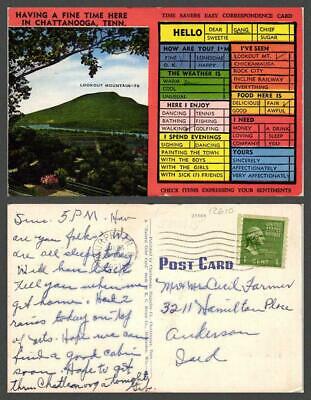 HAVING A FINE TIME HERE
IN CHATTANOOGA, TENN.
LOOKOUT MOUNTAIN-75
TIME SAVERS EASY CORRESPONDENCE CARD
HELLO
DEAR
GANG
CHIEF
SWEETIE
SUGAR
HOW ARE YOU? I'M
FINE
LONESOME
O. K.
HAPPY
THE WEATHER IS
WARM
COOL
UNUSUAL
HERE I ENJOY
DANCING
TENNIS
BATHING
FISHING
WALKING
GOLFING
I SPEND EVENINGS
SPARKING
DANCING
PAINTING THE TOWN
WITH THE BOYS
WITH THE GIRLS
WITH SICK (?) FRIENDS
I'VE SEEN
LOOKOUT MT.
CHICKAMAUGA
ROCK CITY
INCLINE RAILWAY
EVERYTHING
FOOD HERE IS
DELICIOUS
FAIR
GOOD
AWFUL
I NEED
MONEY
A DRINK
LOVING
SLEEP
COMPANY
YOU
YOURS
SINCERELY
AFFECTIONATELY
VERY AFFECTIONATELY
CHECK ITEMS EXPRESSING YOUR SENTIMENTS
5 P.M. How
are you folks? We
are all sleepy today
Will have lots to
tell you when we
get home. Had 2
rains today on top
of yets. Hope we can
find a good cabin
soon. Hope to get
thru Chattanooga tonight
POST CARD
12610
1 CENT 1
Mr & Mrs Cecil Farmer
3211 Hamilton Place
Anderson
Ind